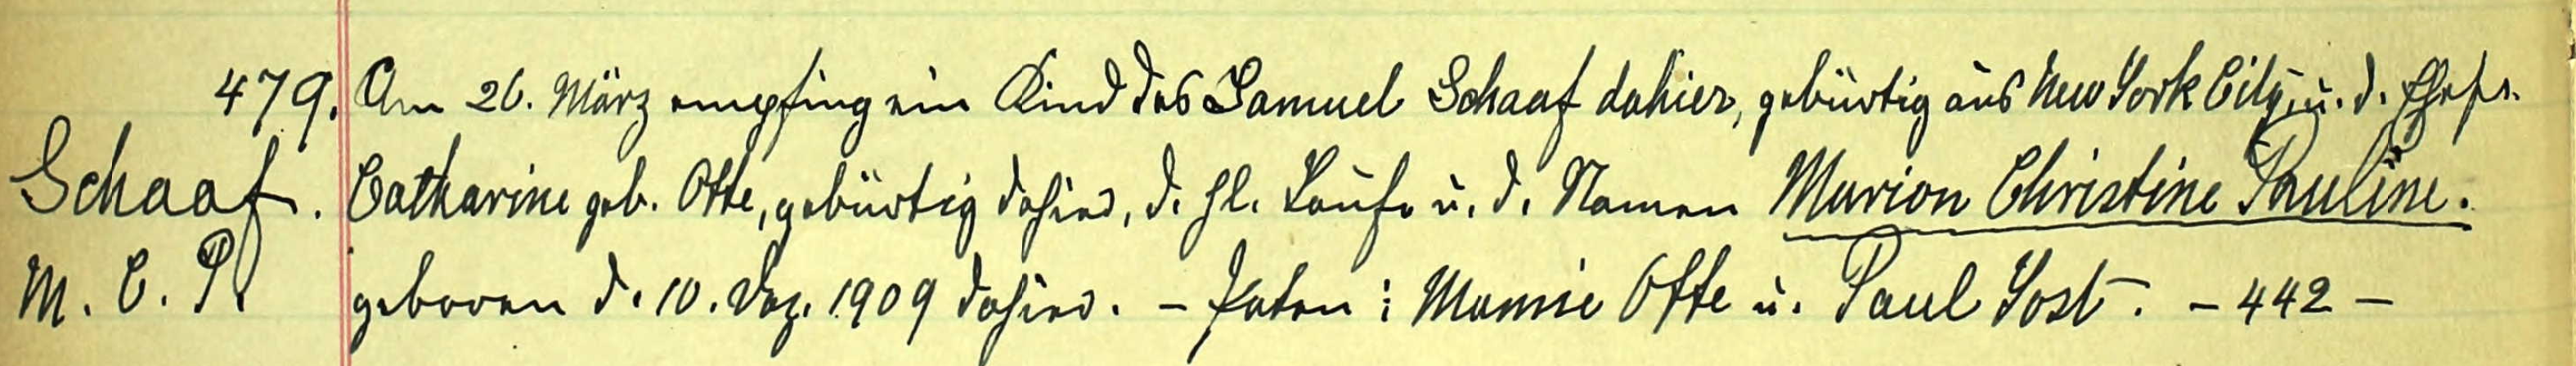 479. Am 26. März empfing ein Kind des Samuel Schaaf dahier, gebürtig aus New York City, u. d. Ehefr.
Schaaf. Catharine geb. Otte, gebürtig dahier, d. hl. Taufe u. d. Namen Marion Christine Pauline.
M. C. P. geboren d. 10. Dez. 1909 dahier. – Paten: Mamie Otte u. Paul Yost. – 442 –